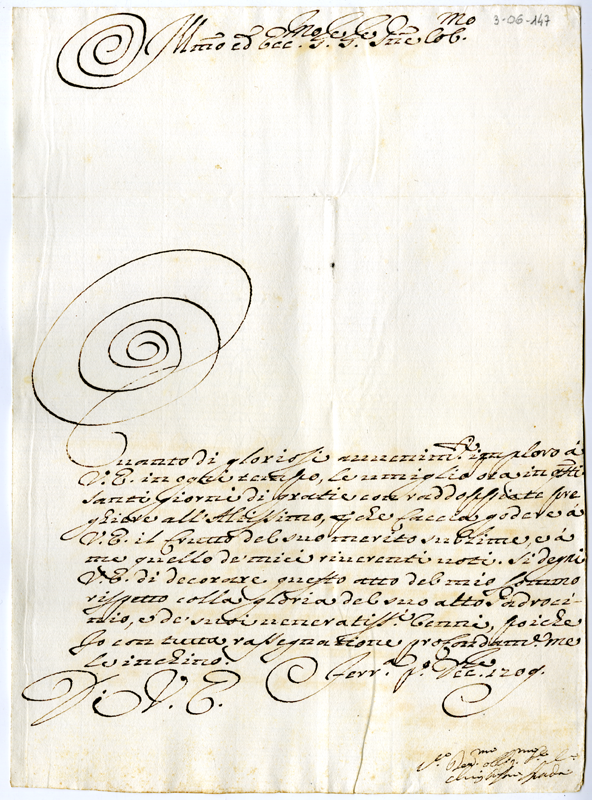 3-06-147
Ill.mo ed Ecc. S. S. Pne Col.mo
Quanto di gloriosi avvenim.ti imploro á
V. E. in ogni tempo, le umiglio ora in q.sti
santi giorni di gratie con raddoppiate pre
ghiere all'Altissimo, che faccia godere á
V. E. il frutto del suo merito sublime, e á
me quello de' miei riverenti voti. Si degni
V. E. di decorare questo atto del mio sommo
rispetto colla gloria del suo alto Padroci
nio, e de' suoi veneratiss.i Cenni, poiche
Io con tutta rassegnatione profondam.e me
le inchino.
Di V. E. Ferr.a p.o Xbre 1709.
S.o
Dev.mo obblig.mo
Spada